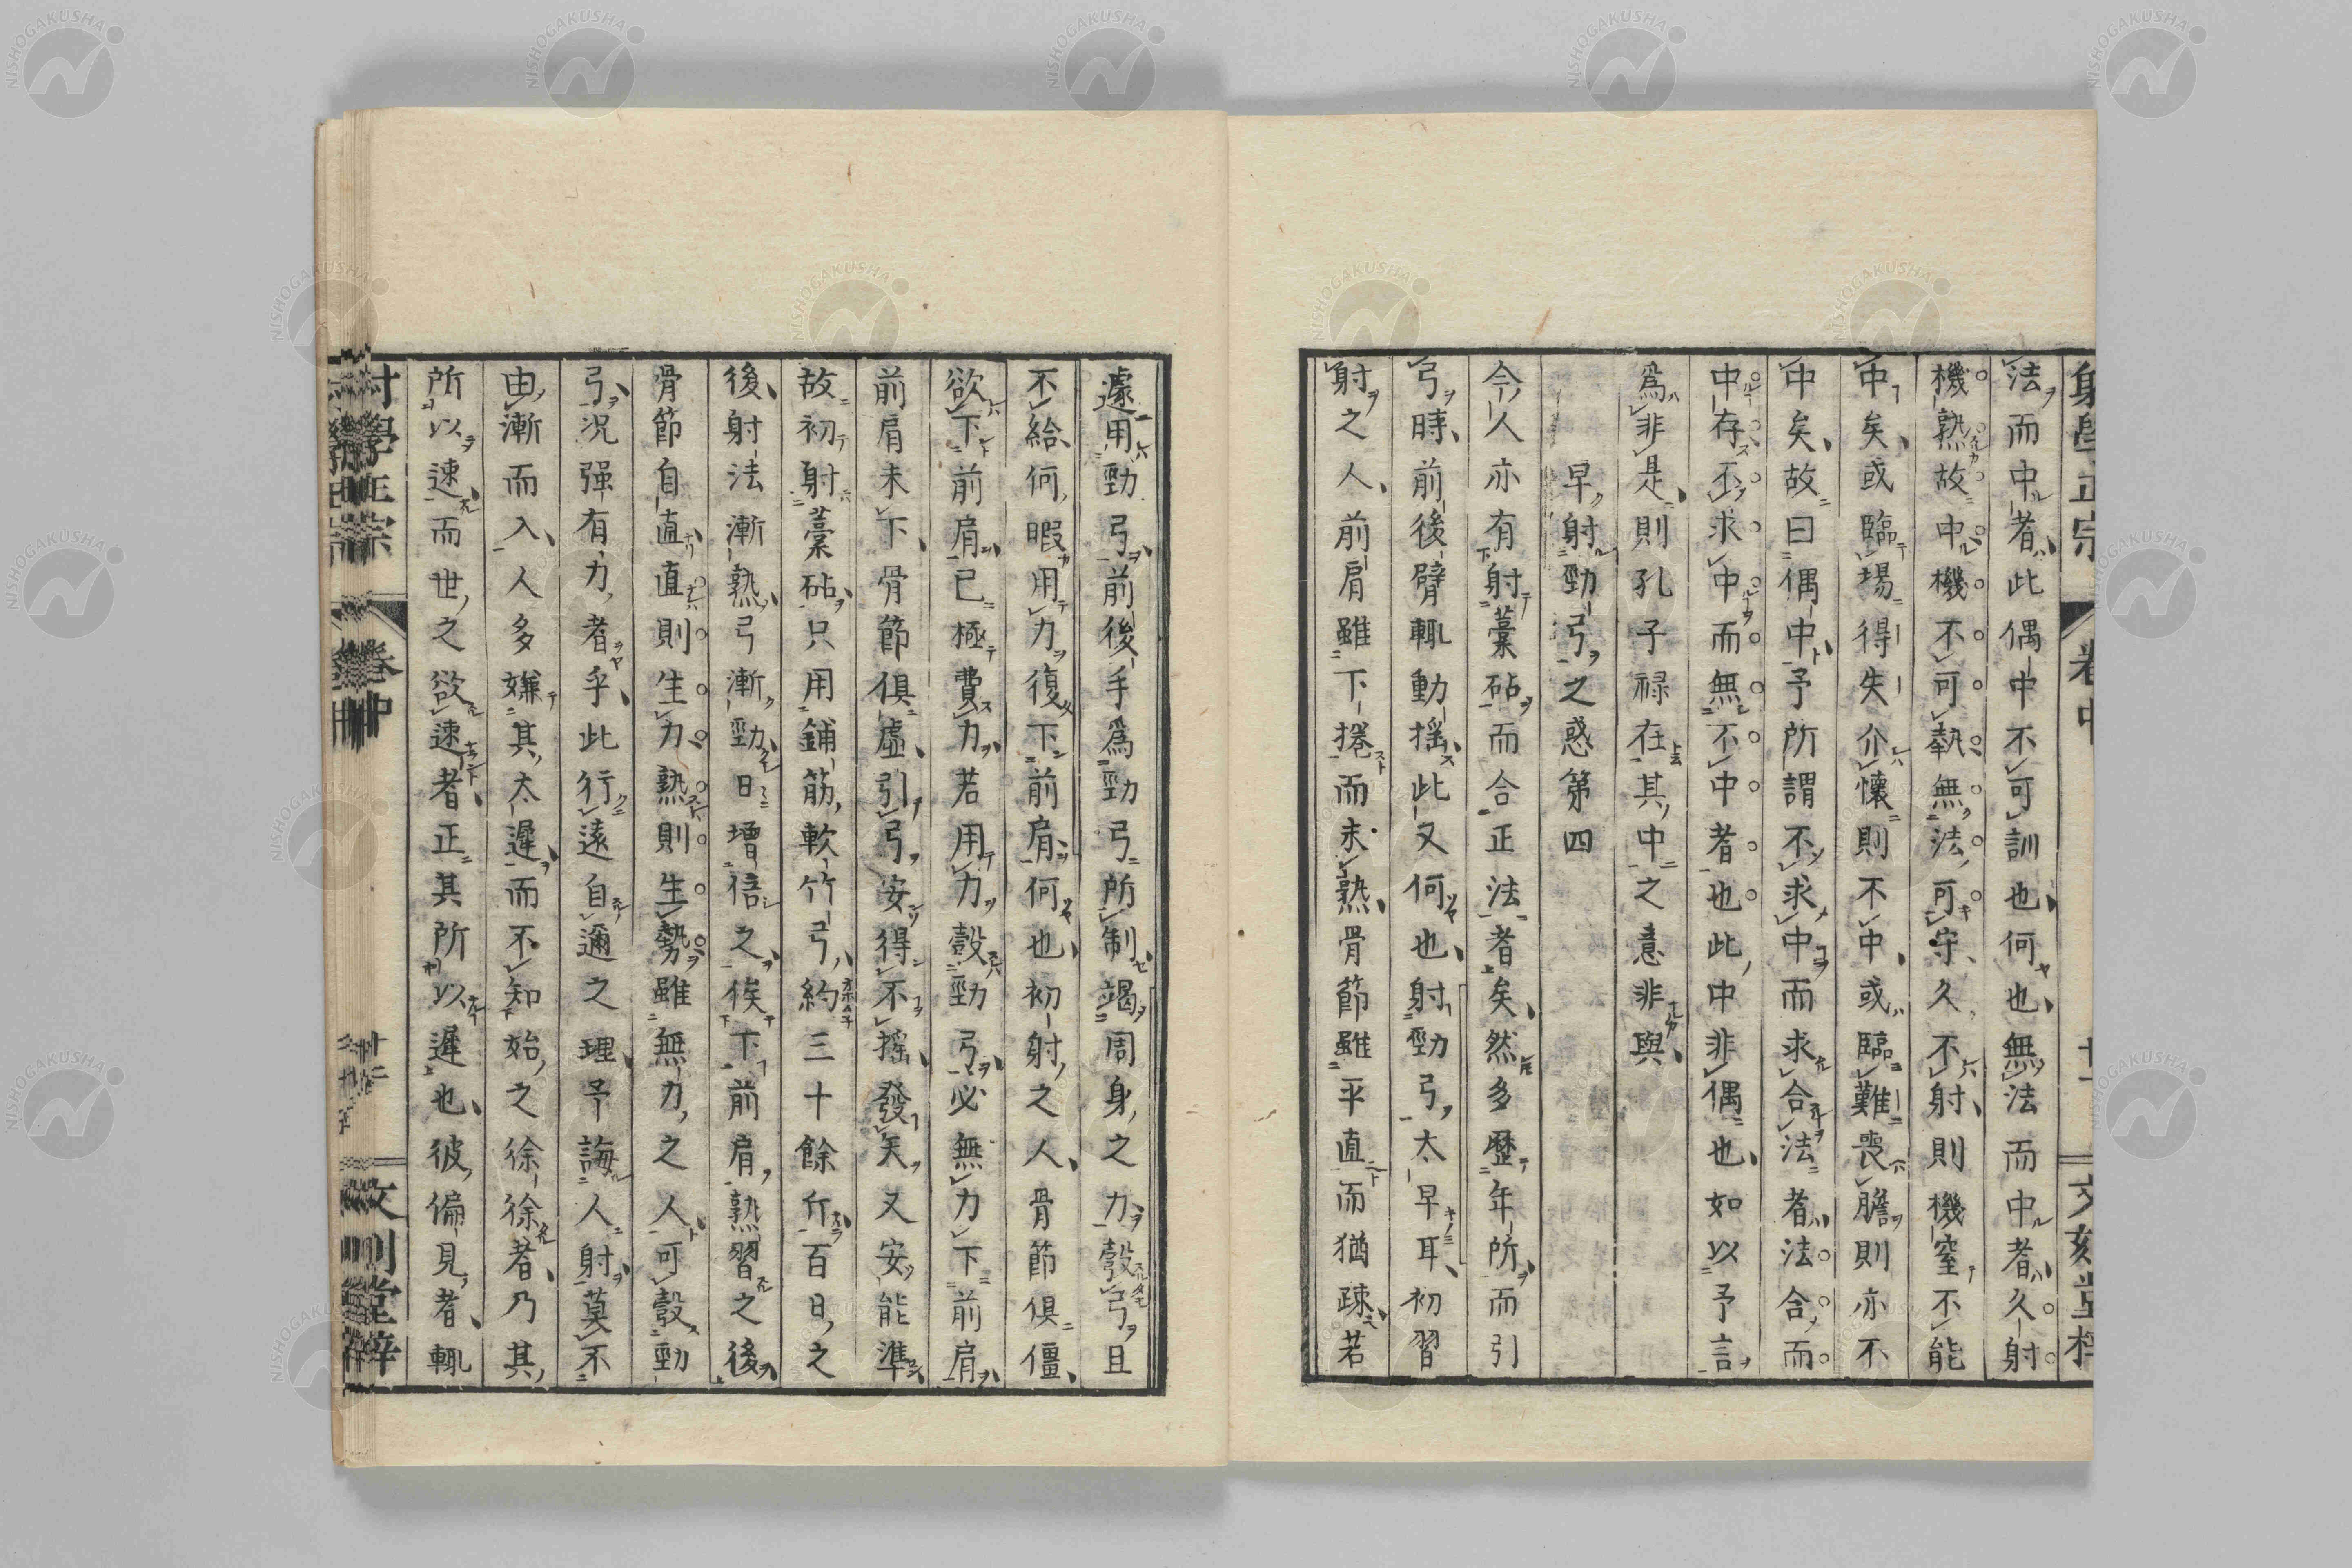 法而中者此偶中不可訓也何也無法而中者久射
機熟故中機不可執無法可守久不射則機窒不能
中矣或臨場得失介懷則不中或臨難喪膽則亦不
中矣故曰偶中予所謂不求中而求合法者法合而
中存不求中而無不中者也此中非偶也如以予言
爲非是則孔子祿在其中之意非與
早射勁弓之惑第四
今人亦有射藁砧而合正法者矣然多歷年所而引
弓時前後臂輒動搖此又何也射勁弓太早耳初習
射之人前肩雖下捲而未熟骨節雖平直而猶疎若
遽用勁弓前後手爲勁弓所制竭周身之力彀弓且
不給何暇用力復下前肩何也初射之人骨節俱僵
欲下前肩已極費力若用力彀勁弓必無力下前肩
前肩未下骨節俱虛引弓安得不搖發矢又安能準
故初射藁砧只用鋪筋軟竹弓約三十餘斤百日之
後射法漸熟弓漸勁日增倍之俟下前肩熟習之後
骨節自直直則生力熟則生勢雖無力之人可彀勁
弓況强有力者乎此行遠自邇之理予誨人射莫不
由漸而入人多嫌其太遲而不知始之徐徐者乃其
所以速而世之欲速者正其所以遲也彼偏見者輒
射學正宗
卷中
十二
NISHOGAKUSHA